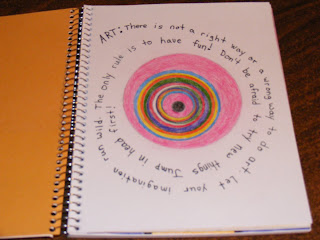 ART: There is not a right way or a wrong way to do art. Let your imagination run wild. The only rule is to have fun! Don't be afraid to try new things. Jump in head first!